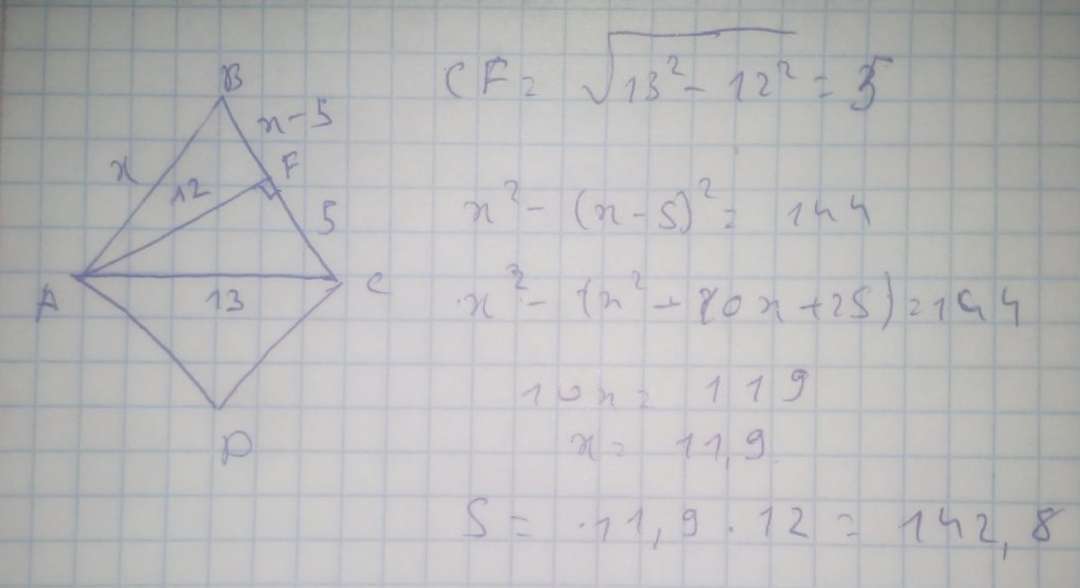 B
x-5
x
12
F
5
A
13
C
D
CF = √13² - 12² = 5
x² - (x - 5)² = 144
x² - (x² - 10x + 25) = 144
10x = 119
x = 11,9
S = 11,9 · 12 = 142,8